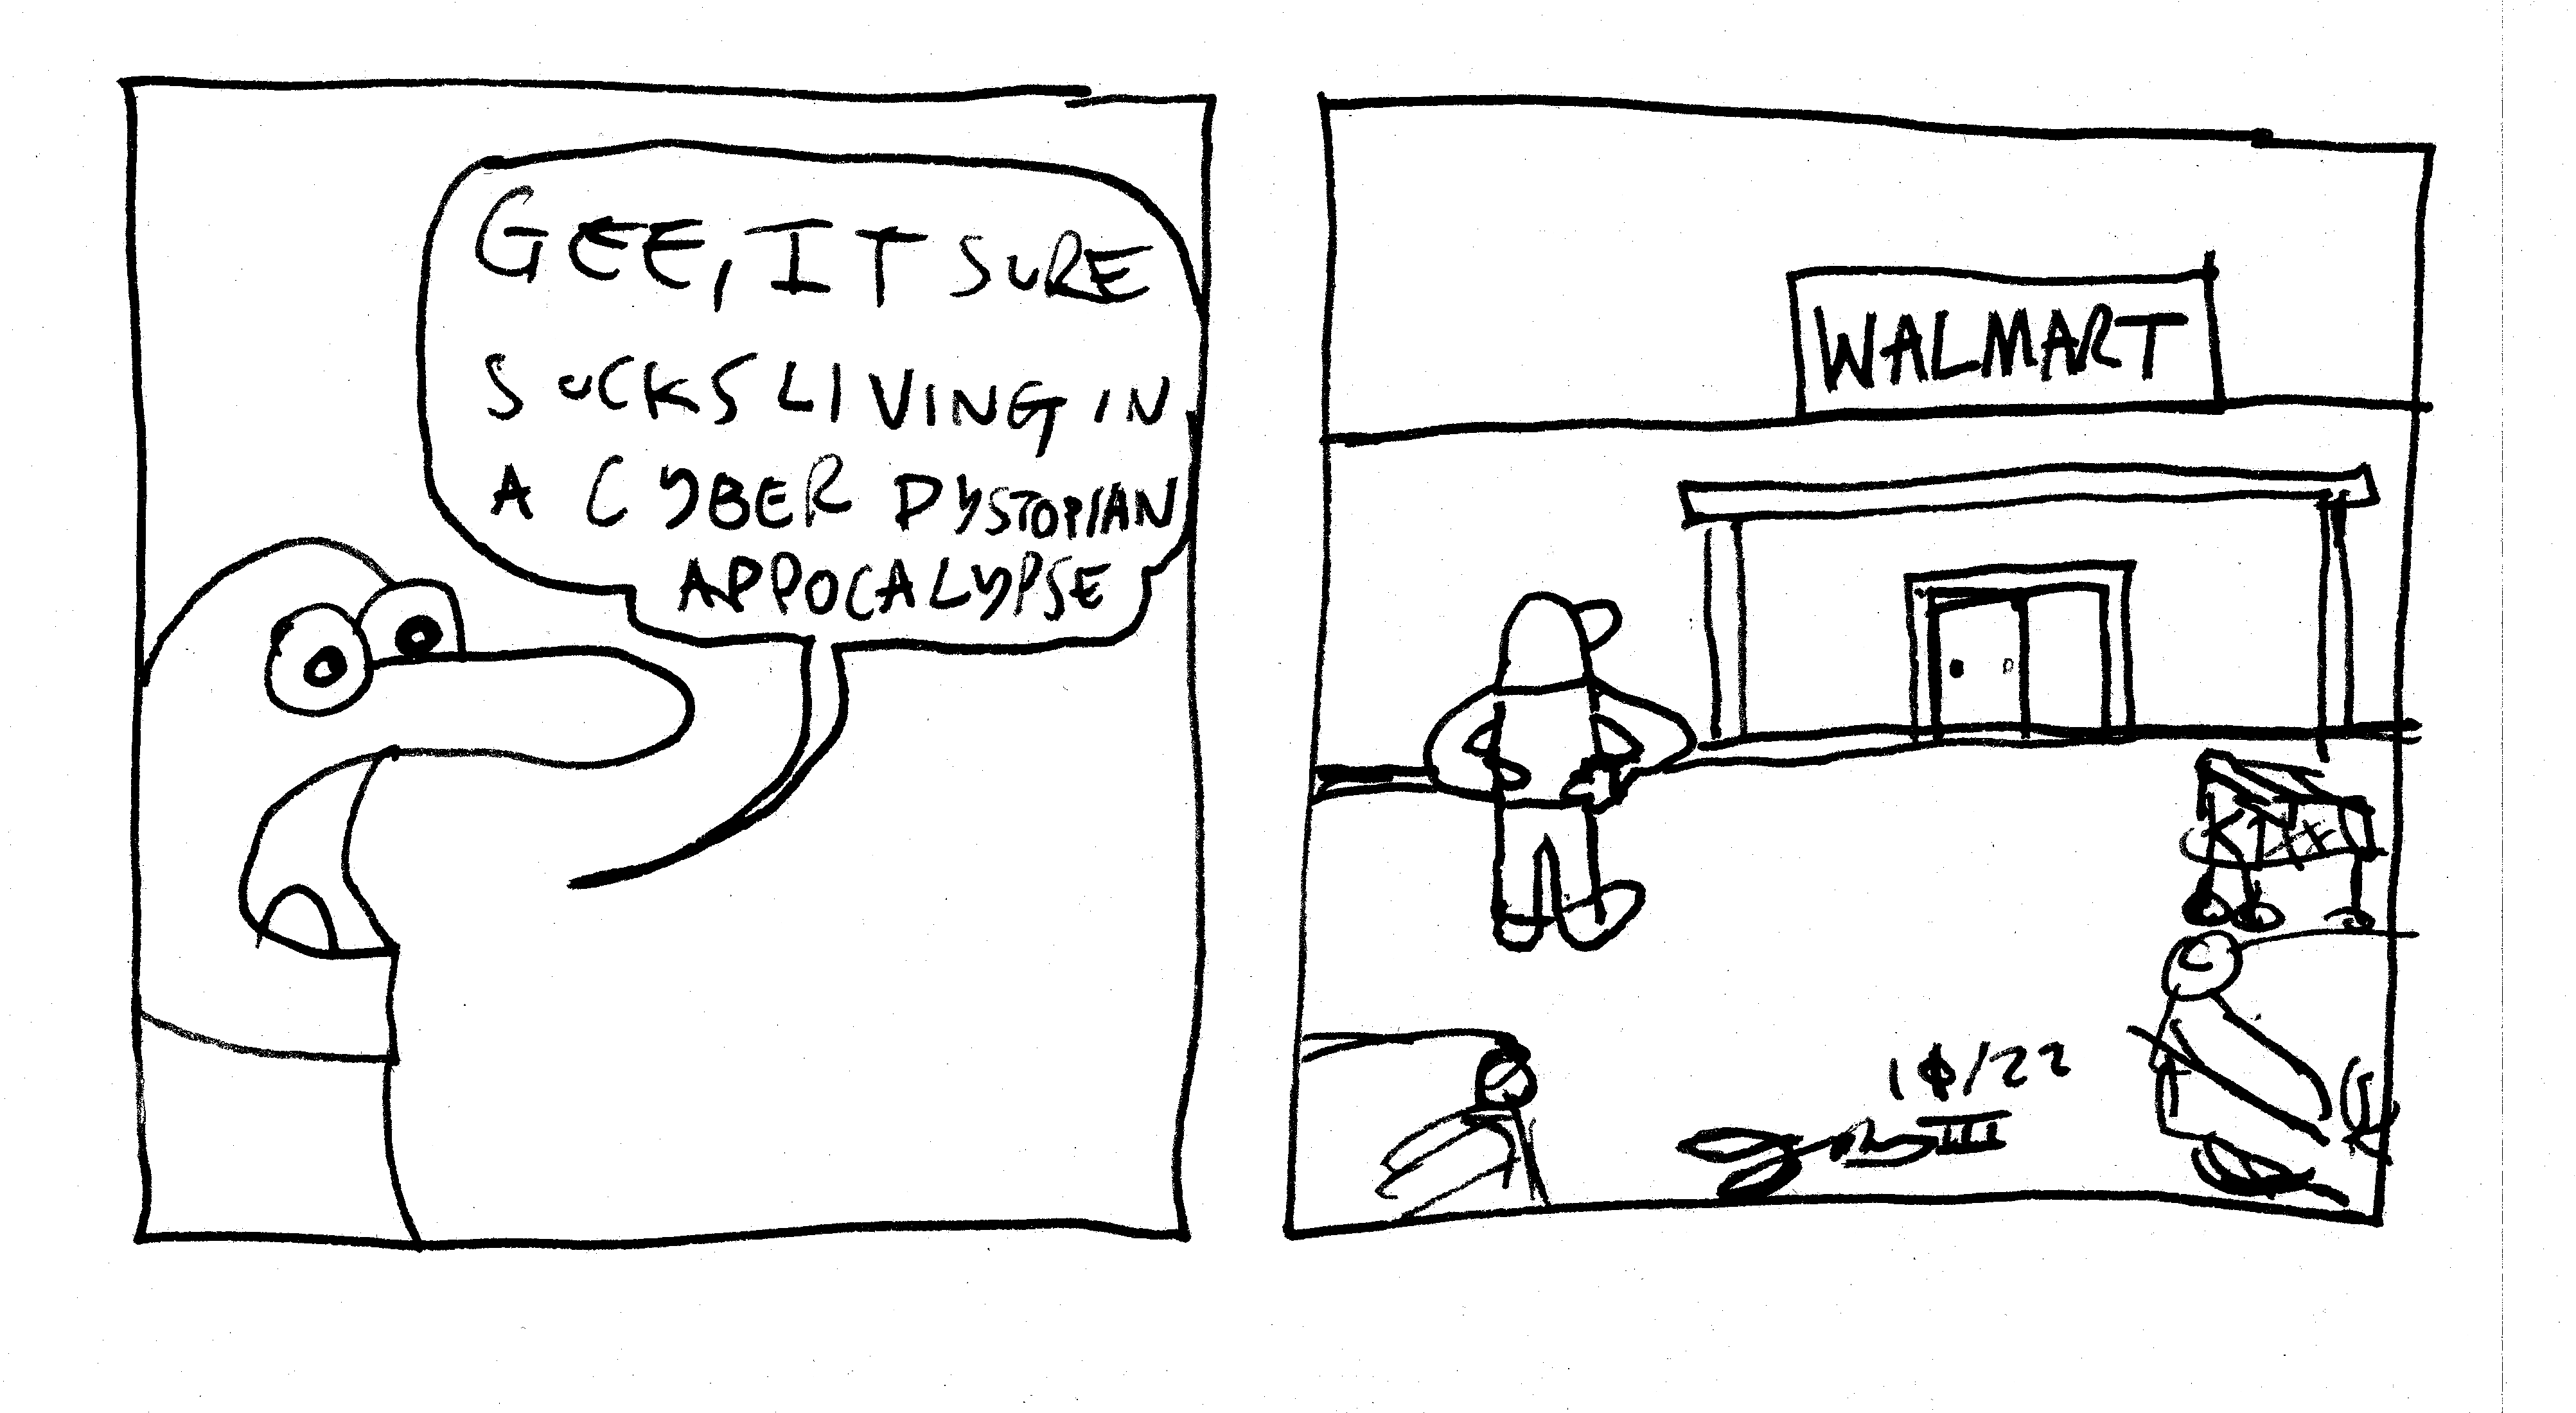 GEE, IT SURE
SUCKS LIVING IN
A CYBER DYSTOPIAN
APPOCALYPSE
WALMART
10/22
III